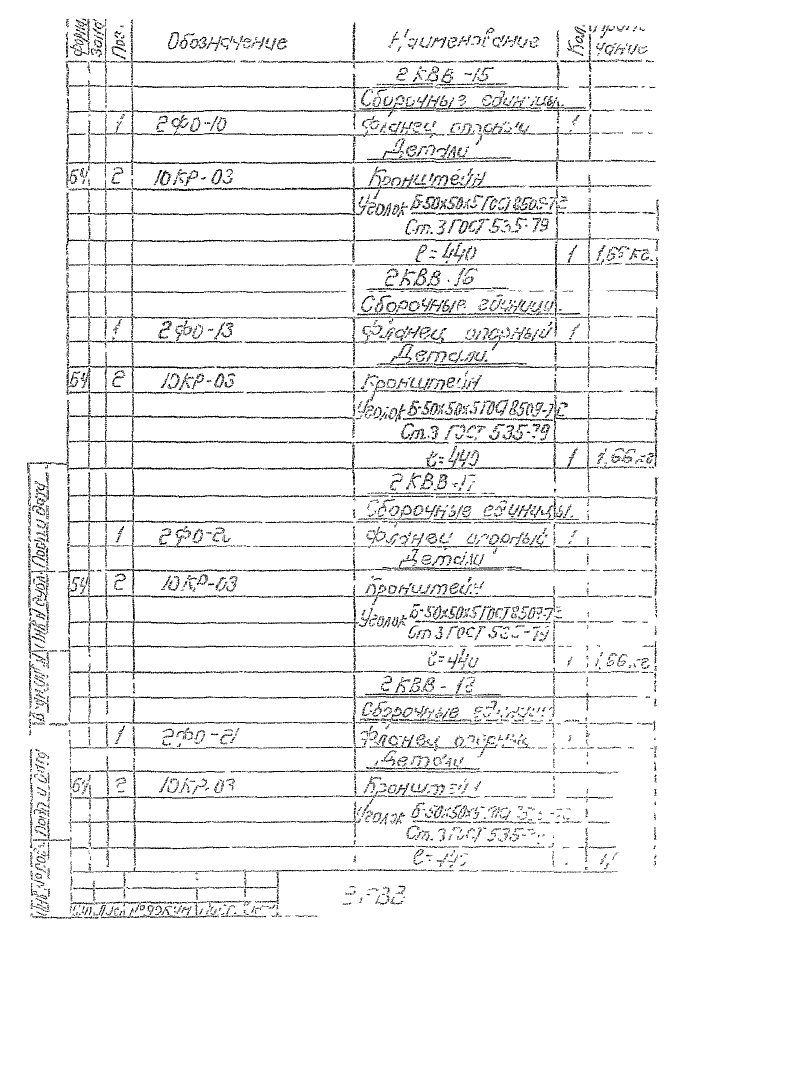 Форм. Зона Поз. Обозначение Наименование Кол. Приме-
чание
2КВВ-15
Сборочные единицы.
1 2ФО-10 Фланец опорный 1
Детали
БЧ 2 10КР-03 Кронштейн
Уголок Б-50х50х5 ГОСТ 8509-72
Ст.3 ГОСТ 535-79
ℓ=440 1 1,66 кг.
2КВВ-16
Сборочные единицы.
1 2ФО-13 Фланец опорный 1
Детали.
БЧ 2 10КР-03 Кронштейн
Уголок Б-50х50х5 ГОСТ 8509-72
Ст.3 ГОСТ 535-79
ℓ=440 1 1,66 кг
2КВВ-17
Сборочные единицы.
1 Фланец опорный 1
Детали
БЧ 2 10КР-03 Кронштейн
Уголок Б-50х50х5 ГОСТ 8509-72
Ст.3 ГОСТ 535-79
ℓ=440 1 1,66 кг
2КВВ-18
Сборочные единицы
1 2ФО-21 Фланец опорный
Детали
БЧ 2 10КР-03 Кронштейн
Уголок Б-50х50х5
Ст.3 ГОСТ 535-
Лист № докум. Подп.
2КВВ
Подп. и дата
Подп. и дата